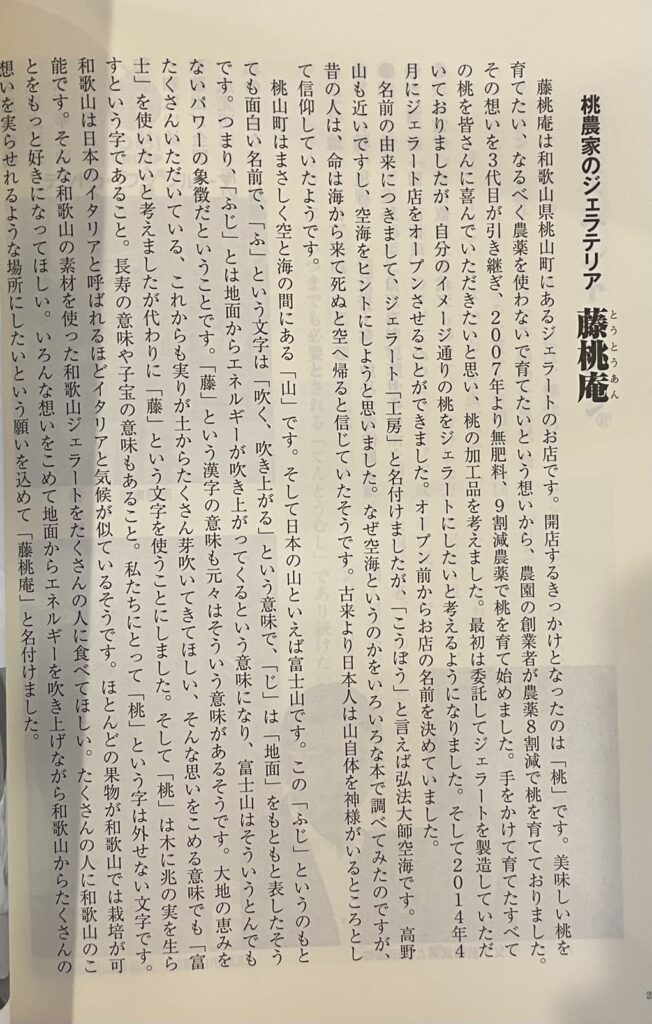 桃農家のジェラテリア 藤桃庵
とうとうあん
藤桃庵は和歌山県桃山町にあるジェラートのお店です。開店するきっかけとなったのは「桃」です。美味しい桃を
育てたい、なるべく農薬を使わないで育てたいという想いから、農園の創業者が農薬8割減で桃を育てておりました。
その想いを3代目が引き継ぎ、2007年より無肥料、9割減農薬で桃を育て始めました。手をかけて育てたすべて
の桃を皆さんに喜んでいただきたいと思い、桃の加工品を考えました。最初は委託してジェラートを製造していただ
いておりましたが、自分のイメージ通りの桃をジェラートにしたいと考えるようになりました。そして2014年4
月にジェラート店をオープンさせることができました。オープン前からお店の名前を決めていました。
名前の由来につきまして、ジェラート「工房」と名付けましたが、「こうぼう」と言えば弘法大師空海です。高野
山も近いですし、空海をヒントにしようと思いました。なぜ空海というのかをいろいろな本で調べてみたのですが、
昔の人は、命は海から来て死ぬと空へ帰ると信じていたそうです。古来より日本人は山自体を神様がいるところとし
て信仰していたようです。
桃山町はまさしく空と海の間にある「山」です。そして日本の山といえば富士山です。この「ふじ」というのもと
ても面白い名前で、「ふ」という文字は「吹く、吹き上がる」という意味で、「じ」は「地面」をもともと表したそう
です。つまり、「ふじ」とは地面からエネルギーが吹き上がってくるという意味になり、富士山はそういうとんでも
ないパワーの象徴だということです。「藤」という漢字の意味も元々はそういう意味があるそうです。大地の恵みを
たくさんいただいている、これからも実りが土からたくさん芽吹いてきてほしい、そんな思いをこめる意味でも「富
士」を使いたいと考えましたが代わりに「藤」という文字を使うことにしました。そして「桃」は木に兆の実を生ら
すという字であること。長寿の意味や子宝の意味もあること。私たちにとって「桃」という字は外せない文字です。
和歌山は日本のイタリアと呼ばれるほどイタリアと気候が似ているそうです。ほとんどの果物が和歌山では栽培が可
能です。そんな和歌山の素材を使った和歌山ジェラートをたくさんの人に食べてほしい。たくさんの人に和歌山のこ
とをもっと好きになってほしい。いろんな想いをこめて地面からエネルギーを吹き上げながら和歌山からたくさんの
想いを実らせれるような場所にしたいという願いを込めて「藤桃庵」と名付けました。